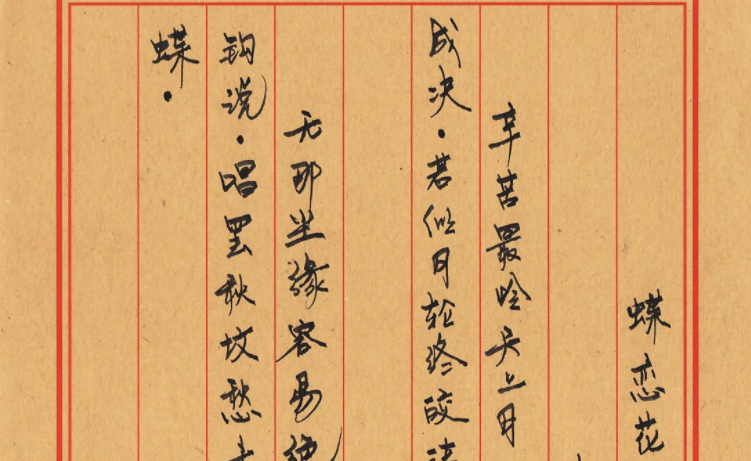 蝶恋花
辛苦最怜天上月
成决.若似月轮终皎洁
无那尘缘容易绝
钩说.唱罢秋坟愁
蝶.